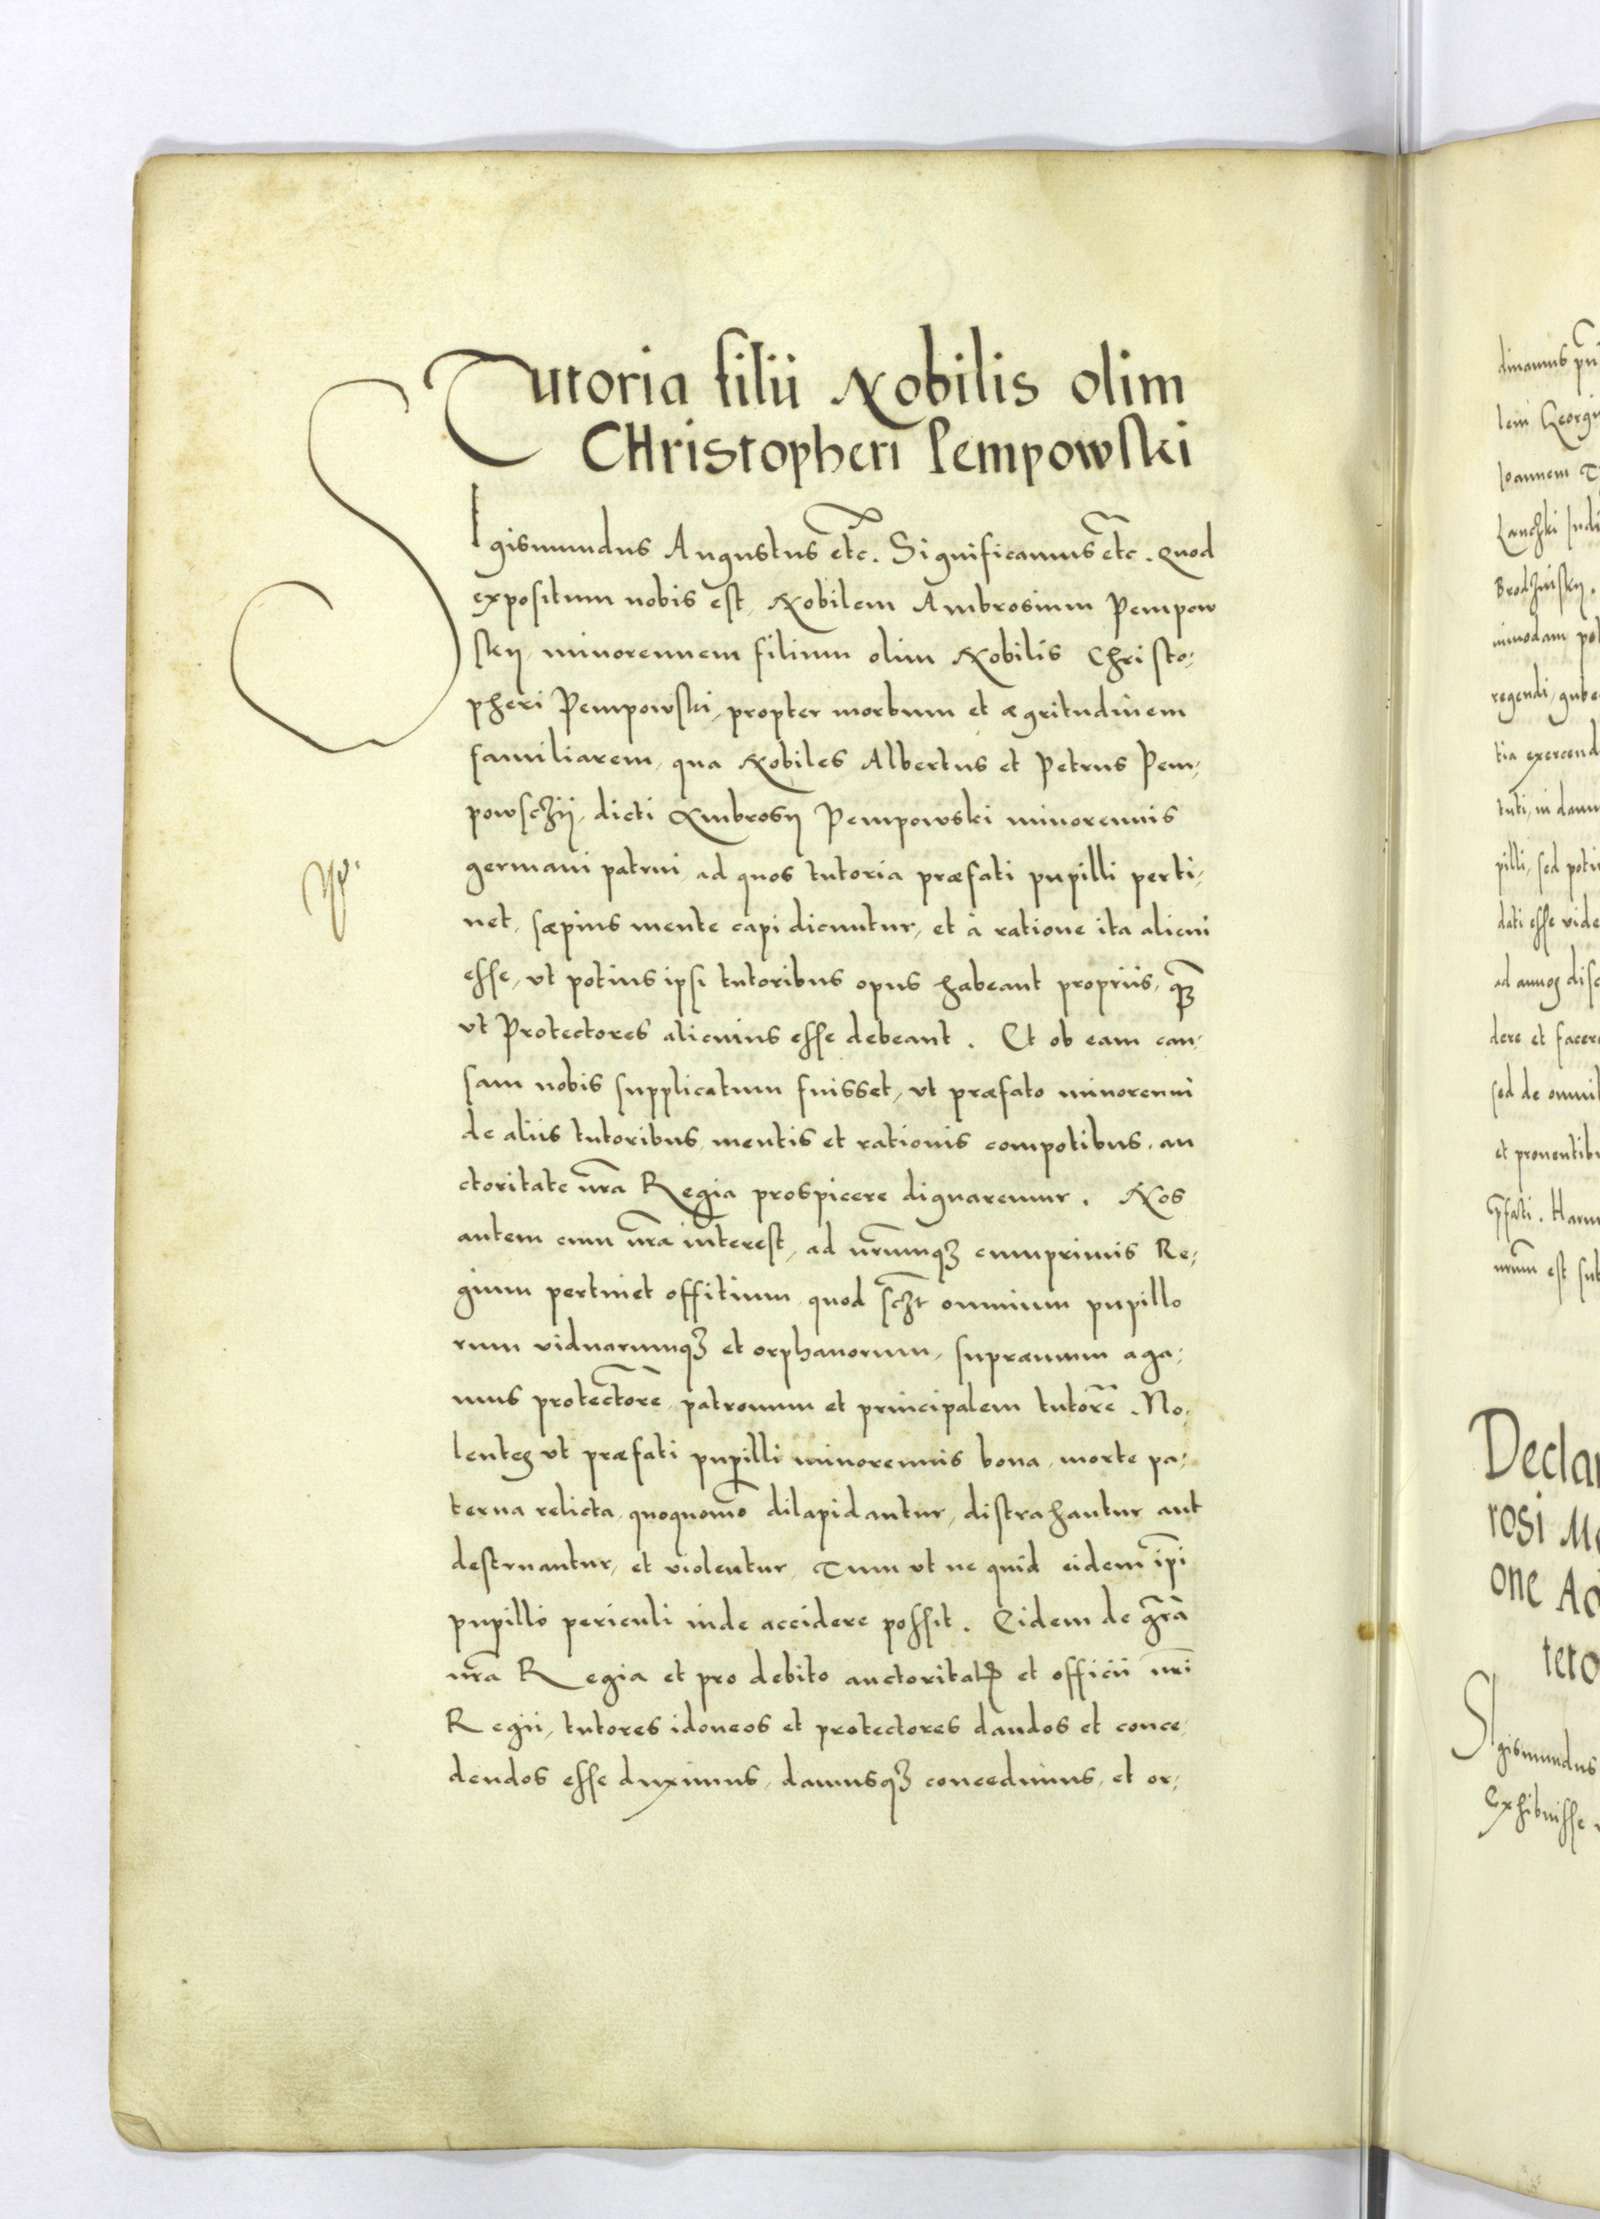 Tutoria filii Nobilis olim
Christopheri Pempowski
SIgismundus Augustus etc. Significamus etc. Quod
expositum nobis est, Nobilem Ambrosium Pempow
skij, minorennem filium olim Nobilis Christo-
pheri Pempowski, propter morbum et ægritudinem
familiarem, qua Nobiles Albertus et Petrus Pem-
powsczij, dicti Ambrosij Pempowski minorennis
germani patrui, ad quos tutoria præfati pupilli perti-
net, sæpius mente capi dicuntur, et à ratione ita alieni
esse, ut potius ipsi tutoribus opus habeant propriis, q̃ȝ
vt Protectores alicuius esse debeant. Et ob eam cau-
sam nobis supplicatum fuisset, vt præfato minorenni
de aliis tutoribus, mentis et rationis compotibus, au
ctoritate nr̃a Regia prospicere dignaremur. Nos
autem cum nr̃a interest, ad nr̃umqȝ cumprimis Re-
gium pertinet offitium, quod sczt̃ omnium pupillo
rum viduarumqȝ et orphanorum, supræmum aga-
mus protectorẽ, patronum et principalem tutorẽ. No-
lentes vt præfati pupilli minorennis bona, morte pa-
terna relicta, quoquomõ dilapidantur, distrahantur aut
destruantur, et violentur, Tum vt ne quid eidem ip̃i
pupillo periculi inde accidere possit. Eidem de gr̃a
nr̃a Regia et pro debito auctoritatis et officii nr̃i
Regii, tutores idoneos et protectores dandos et conce-
dendos esse duximus, damusqȝ concedimus, et or-
dinamus
lem Georgi
Ioannem
Lanczki
Brodzinskij.
imodam
regendi, gube
tia exercend
tuti, in dam
pilli, sed poti
dati esse vide
ad annos disc
dere et facere
sed de omni
et prouentib
p̃fati. Harum
nr̃um est sub
Declar
rosi
one
Sigismundus
Exhibuisse